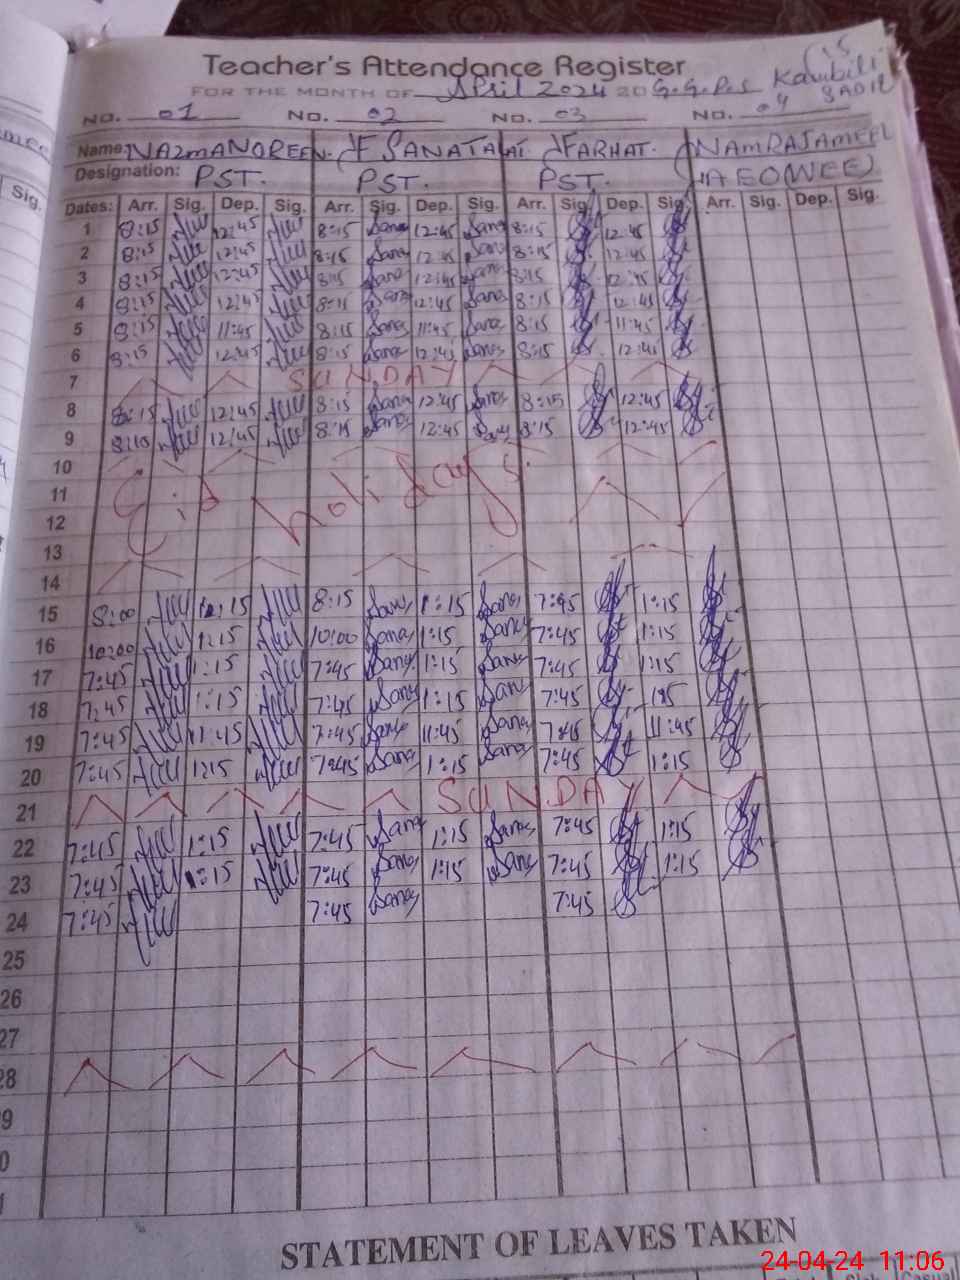 Teacher's Attendance Register
FOR THE MONTH OF April 2024 20 G.G.P.S Kambili
SADIQ
NO. 01 NO. 02 NO. 03 NO. 04
Name: NAZMANOREEN. SANATALAT. FARHAT. NAMRAJAMEEL
Designation: PST. PST. PST. AEO(WEE)
Dates: Arr. Sig. Dep. Sig. Arr. Sig. Dep. Sig. Arr. Sig. Dep. Sig. Arr. Sig. Dep. Sig.
1 8:15 12:45 8:15 Sana 12:45 Sana 8:15 12:45
2 8:15 12:45 8:15 Sana 12:45 Sana 8:15 12:45
3 8:15 12:45 8:15 Sana 12:45 Sana 8:15 12:45
4 8:15 12:45 8:15 Sana 12:45 Sana 8:15 12:45
5 8:15 11:45 8:15 Sana 11:45 Sana 8:15 11:45
6 8:15 12:45 8:15 Sana 12:45 Sana 8:15 12:45
7 SUNDAY
8 8:15 12:45 8:15 Sana 12:45 Sana 8:15 12:45
9 8:15 12:45 8:15 Sana 12:45 Sana 8:15 12:45
10
11 Eid Holidays.
12
13
14
15 8:00 1:15 8:15 Sana 1:15 Sana 7:45 1:15
16 10:00 1:15 10:00 Sana 1:15 Sana 7:45 1:15
17 7:45 1:15 7:45 Sana 1:15 Sana 7:45 1:15
18 7:45 1:15 7:45 Sana 1:15 Sana 7:45 1:15
19 7:45 11:45 7:45 Sana 11:45 Sana 7:45 11:45
20 7:45 1:15 7:45 Sana 1:15 Sana 7:45 1:15
21 SUNDAY
22 7:45 1:15 7:45 Sana 1:15 Sana 7:45 1:15
23 7:45 1:15 7:45 Sana 1:15 Sana 7:45 1:15
24 7:45 7:45 Sana 7:45
25
26
27
28
9
0
1
STATEMENT OF LEAVES TAKEN
24-04-24 11:06
Sig.